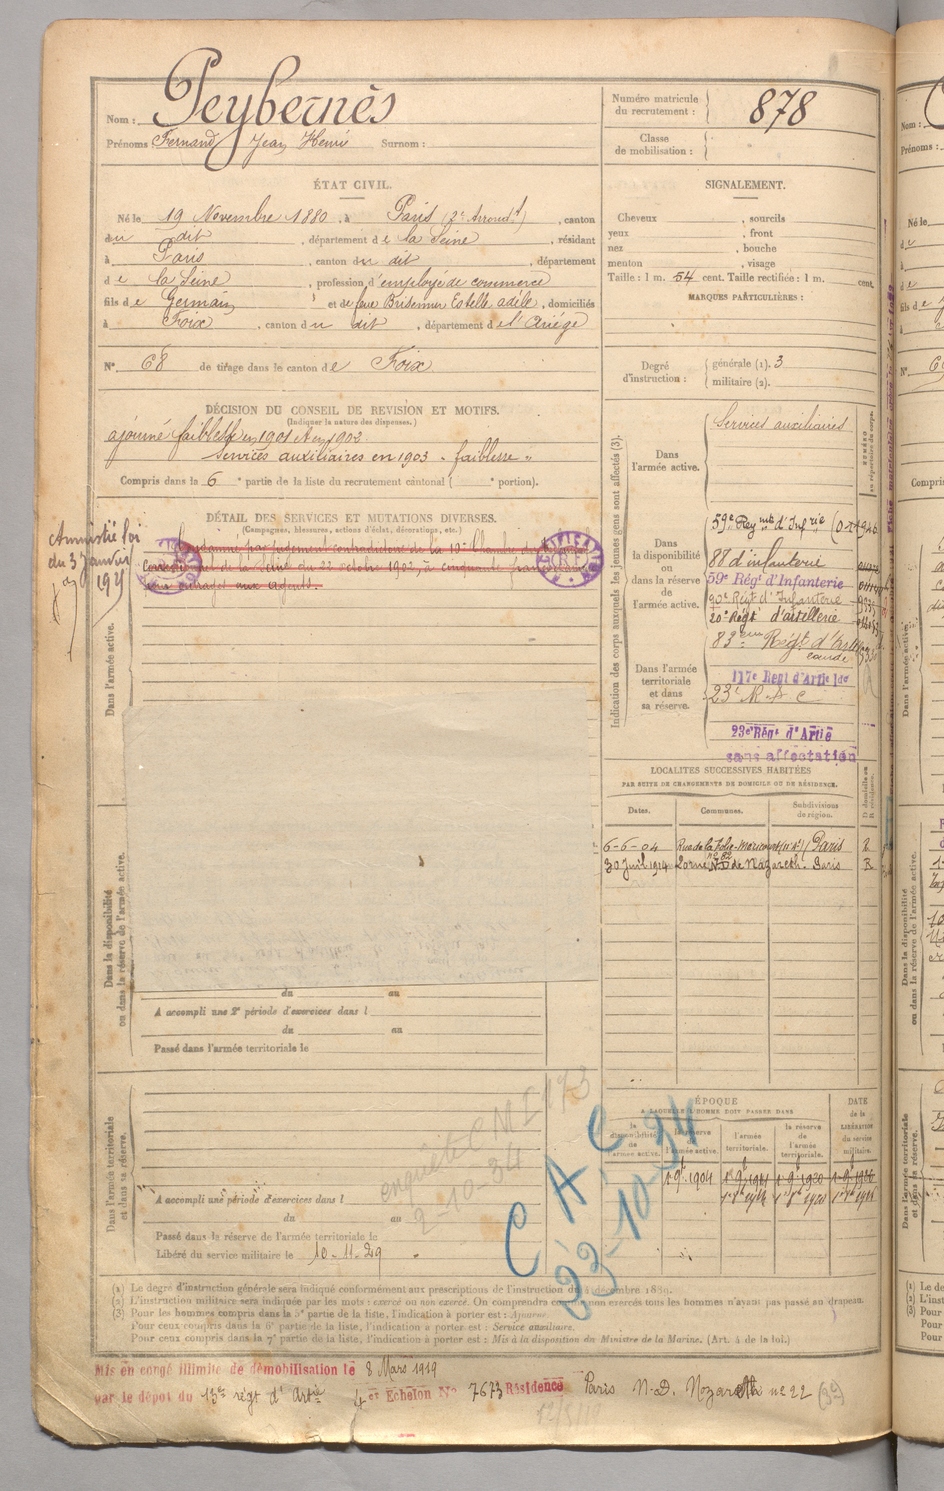 Nom : Peybernès
Prénoms Fernand Jean Henri Surnom :
Numéro matricule du recrutement : 878
Classe de mobilisation :
ÉTAT CIVIL.
Né le 19 Novembre 1880, à Paris (2e Arrondt), canton
du dit, département de la Seine, résidant
à Paris, canton du dit, département
de la Seine, profession d'employé de commerce
fils de Germain et de feue Brisemur Estelle adèle, domiciliés
à Foix, canton du dit, département de l'Ariège
N° 68 de tirage dans le canton de Foix
SIGNALEMENT.
Cheveux , sourcils
yeux , front
nez , bouche
menton , visage
Taille : 1 m. 54 cent. Taille rectifiée : 1 m. cent.
MARQUES PARTICULIÈRES :
Degré d'instruction : générale (1). 3
militaire (2).
DÉCISION DU CONSEIL DE REVISION ET MOTIFS.
(Indiquer la nature des dispenses.)
ajourné faiblesse en 1901 et en 1902.
Services auxiliaires en 1903 - faiblesse "
Compris dans la 6e partie de la liste du recrutement cantonal ( e portion).
DÉTAIL DES SERVICES ET MUTATIONS DIVERSES.
(Campagnes, blessures, actions d'éclat, décorations, etc.)
Amnistié loi
du 3 janvier
1925
Condamné par jugement contradictoire de la 10e Chambre du
Correctionnel de la Seine du 22 octobre 1902, à cinquante francs
pour outrages aux agents.
Dans l'armée active.
Dans la disponibilité
ou dans la réserve de l'armée active.
du au
A accompli une 2e période d'exercices dans l
du au
Passé dans l'armée territoriale le
Dans l'armée territoriale
et dans sa réserve.
enquête C M I 193
2-10-34
A accompli une période d'exercices dans l
du au
Passé dans la réserve de l'armée territoriale le
Libéré du service militaire le 10-11-29
CAC
23-10-34
Indication des corps auxquels les jeunes gens sont affectés (3).
NUMÉRO
au répertoire du corps.
Dans l'armée active.
Services auxiliaires
Dans la disponibilité ou dans la réserve de l'armée active.
59e Regmt d'Infrie
88 d'infanterie
59e Régt d'Infanterie
90e Régt d'Infanterie
20e Régt d'artillerie
83eme Régt d'Artie
lourde
Dans l'armée territoriale et dans sa réserve.
117e Regt d'Artie lde
23e R A C
23e Régt d'Artie
sans affectation
LOCALITES SUCCESSIVES HABITÉES
PAR SUITE DE CHANGEMENTS DE DOMICILE OU DE RÉSIDENCE.
Dates. Communes. Subdivisions de région. D domicile ou R résidence.
6-6-04 Rue de la Folie-Mericourt Paris R
30 Juil 1914 N.D de Nazareth - Paris R
ÉPOQUE
A LAQUELLE L'HOMME DOIT PASSER DANS
la disponibilité de l'armée active.
la réserve de l'armée active.
l'armée territoriale.
la réserve de l'armée territoriale.
DATE de la LIBÉRATION du service militaire.
(1) Le degré d'instruction générale sera indiqué conformément aux prescriptions de l'instruction du 4 décembre 1889.
(2) L'instruction militaire sera indiquée par les mots : exercé ou non exercé. On comprendra comme non exercés tous les hommes n'ayant pas passé au drapeau.
(3) Pour les hommes compris dans la 5e partie de la liste, l'indication à porter est : Ajourné.
Pour ceux compris dans la 6e partie de la liste, l'indication à porter est : Service auxiliaire.
Pour ceux compris dans la 7e partie de la liste, l'indication à porter est : Mis à la disposition du Ministre de la Marine. (Art. 4 de la loi.)
Mis en congé illimité de démobilisation le 8 Mars 1919
par le dépôt du 13e régt d'Artie 4er Echelon N° 7673 Résidence Paris N.-D. Nozareth n° 22
12/5/19